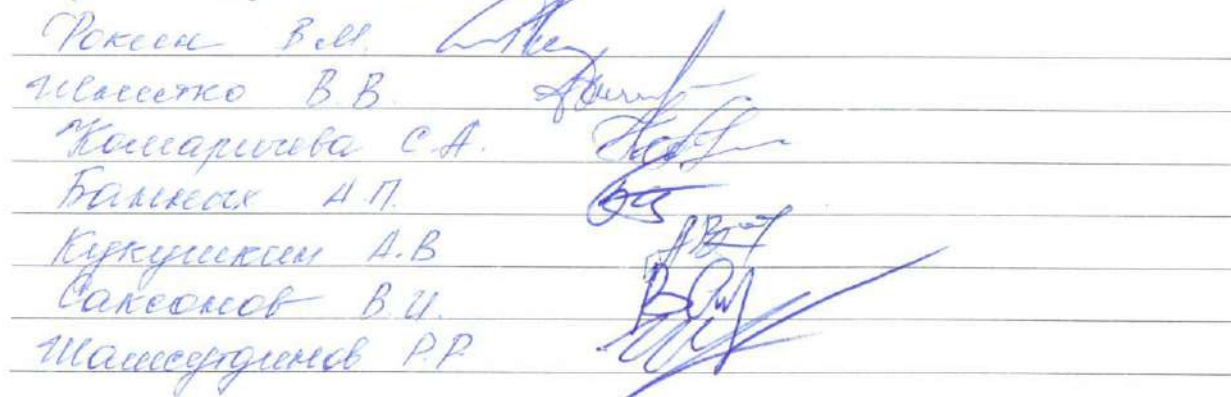 Рокин В.М.
Шмытко В.В.
Комаричева С.А.
Банных А.П.
Кукушкин А.В
Саксонов В.И.
Шамсутдинов Р.Р